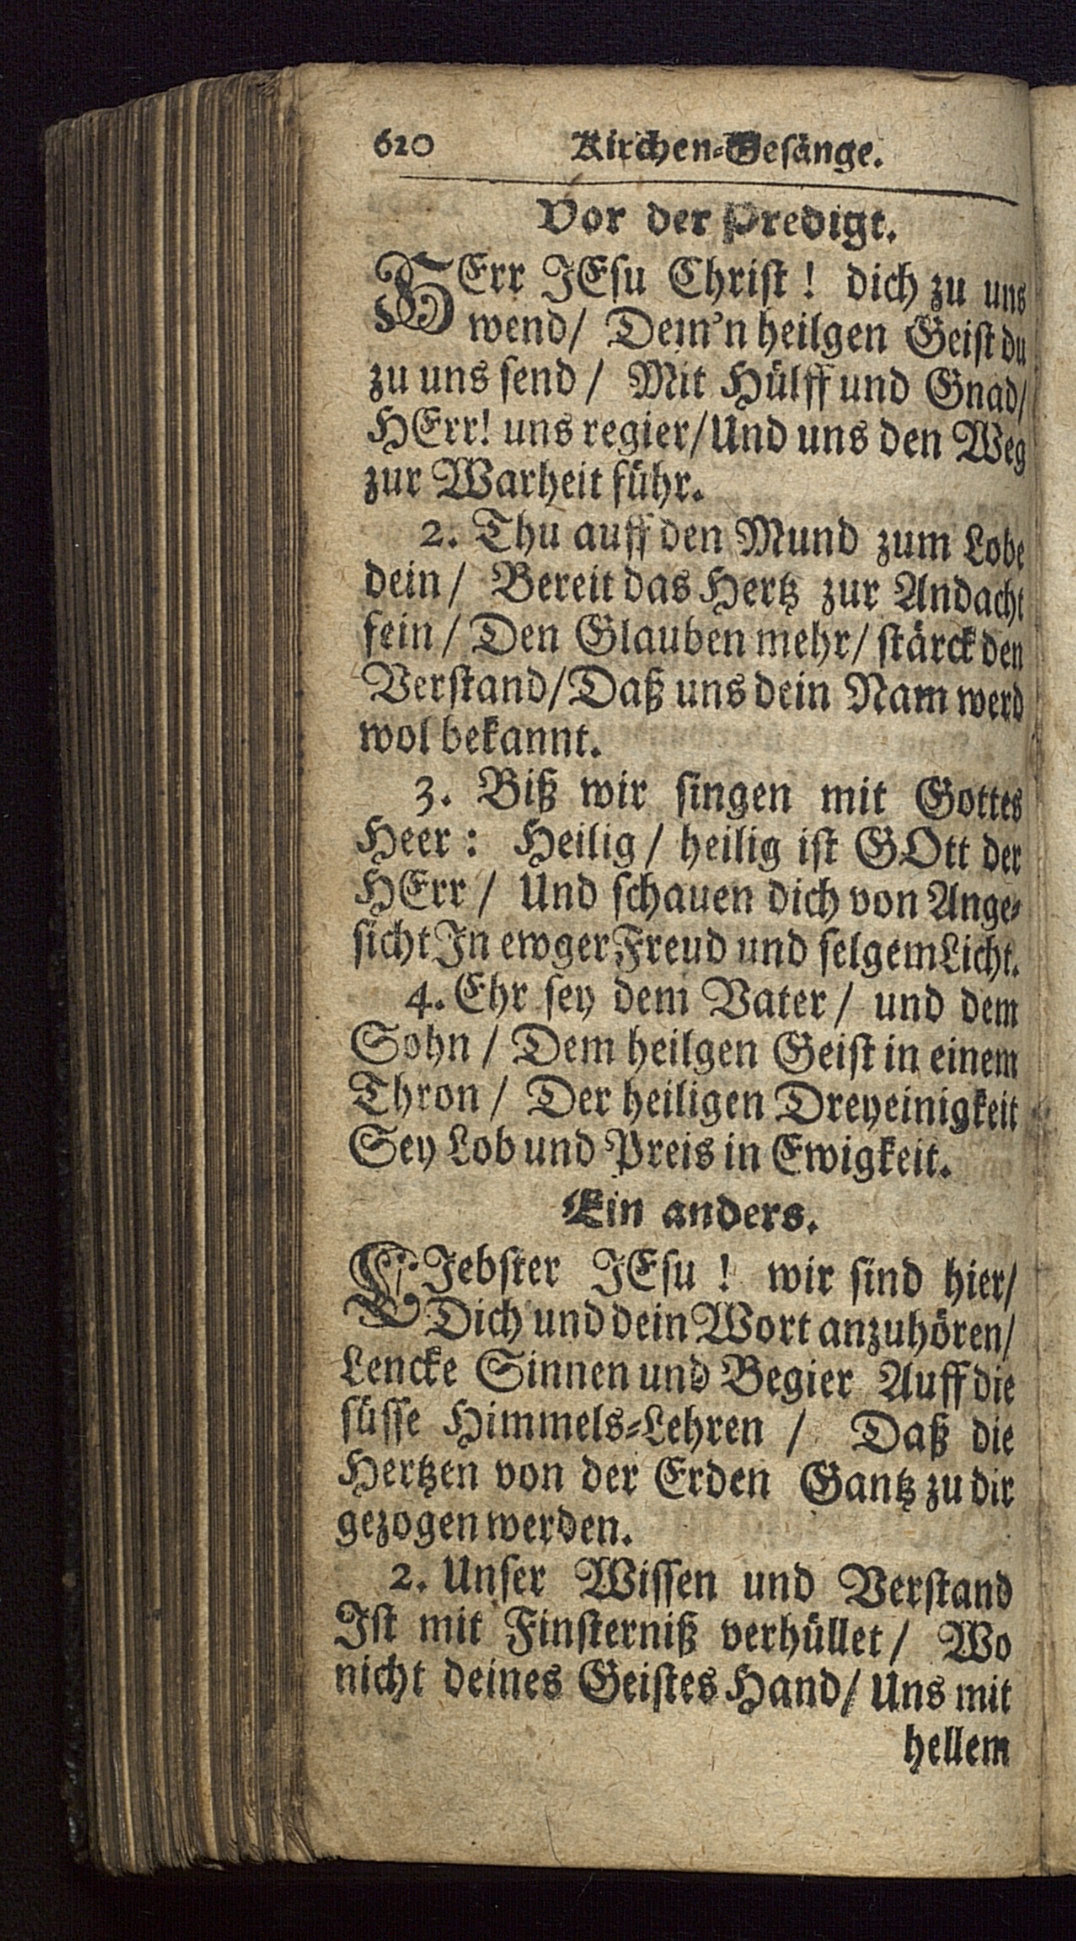 620 Kirchen-Gesänge.
Vor der Predigt.
HErr JEsu Christ! dich zu uns
wend/ Dein'n heilgen Geist du
zu uns send/ Mit Hülff und Gnad/
HErr! uns regier/Und uns den Weg
zur Warheit führ.
2. Thu auff den Mund zum Lobe
dein/ Bereit das Hertz zur Andacht
fein/ Den Glauben mehr/ stärck den
Verstand/Daß uns dein Nam werd
wol bekannt.
3. Biß wir singen mit Gottes
Heer: Heilig/ heilig ist GOtt der
HErr/ Und schauen dich von Ange-
sicht In ewger Freud und selgem Licht.
4. Ehr sey dem Vater/ und dem
Sohn/ Dem heilgen Geist in einem
Thron/ Der heiligen Dreyeinigkeit
Sey Lob und Preis in Ewigkeit.
Ein anders.
LJebster JEsu! wir sind hier/
Dich und dein Wort anzuhören/
Lencke Sinnen und Begier Auff die
süsse Himmels-Lehren/ Daß die
Hertzen von der Erden Gantz zu dir
gezogen werden.
2. Unser Wissen und Verstand
Ist mit Finsterniß verhüllet/ Wo
nicht deines Geistes Hand/ Uns mit
hellem